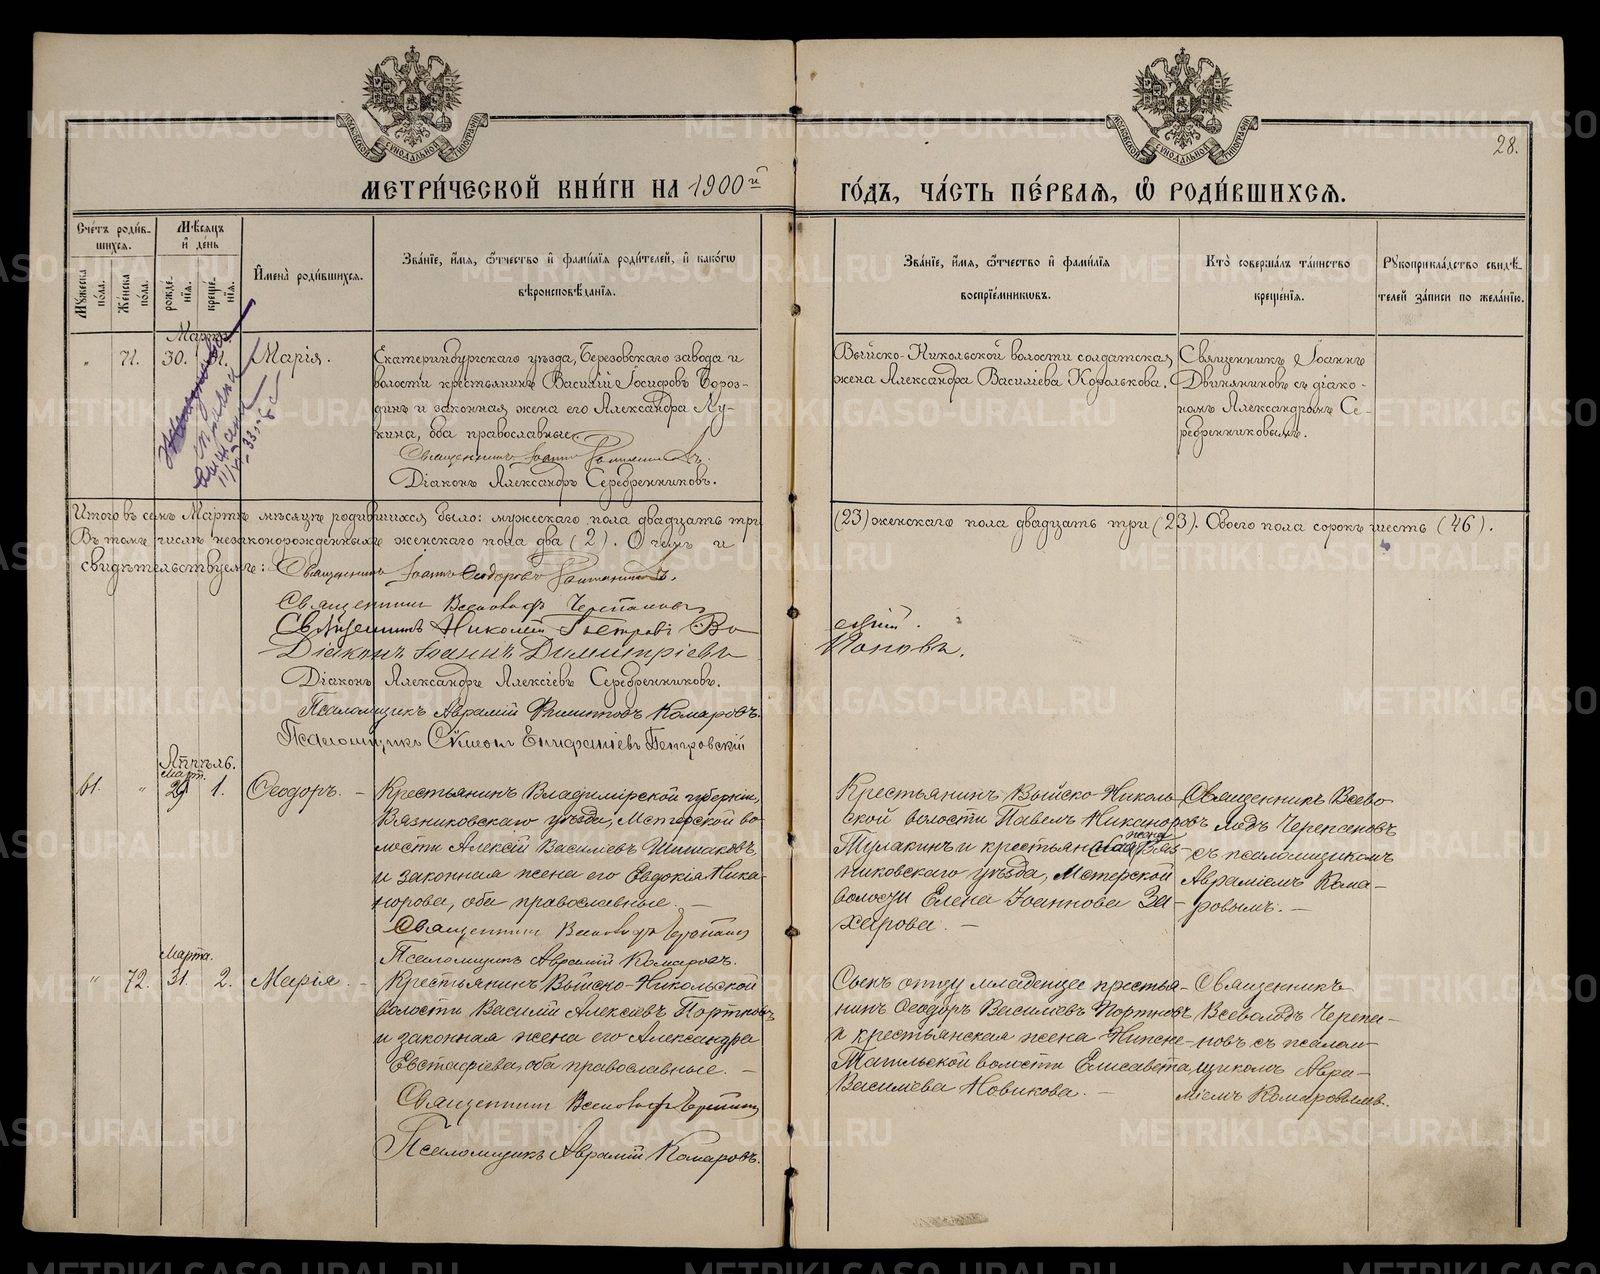 МОСКОВСКОЙ СѴНОДАЛЬНОЙ ТИПОГРАФІИ
МОСКОВСКОЙ СѴНОДАЛЬНОЙ ТИПОГРАФІИ
28.
МЕТРИ́ЧЕСКОЙ КНИ́ГИ НА 1900й ГО́ДЪ, ЧА́СТЬ ПЕ́РВАѦ, Ѿ РОДИ́ВШИХСѦ.
Сче́тъ роди́в-
шихсѧ.
Мѣ́сѧцъ
и҆ де́нь
Мꙋ́жеска по́ла.
Же́нска по́ла.
рожде́-
нїѧ.
креще́-
нїѧ.
И҆мена̀ роди́вшихсѧ.
Зва́нїе, и҆́мѧ, ѻ҆́тчество и҆ фами́лїѧ роди́телей, и҆ како́гѡ
вѣроисповѣ́данїѧ.
Зва́нїе, и҆́мѧ, ѻ҆́тчество и҆ фами́лїѧ
воспрїе́мникѡвъ.
Кто̀ соверша́лъ та́инство
креще́нїѧ.
Рꙋкоприкла́дство свидѣ́-
телей за́писи по жела́нїю.
Мартъ
" 71. 30. 31. Марія.
Екатеринбургскаго уѣзда, Березовскаго завода и
волости крестьянинъ Василій Іосифовъ Бороз-
динъ и законная жена его Александра Лу-
кина, оба православные.
Священникъ Іоаннъ
Діаконъ Александръ Серебренниковъ.
Выйско-Никольской волости солдатская
жена Александра Василіева Королькова.
Священникъ Іоаннъ
Двиняниновъ съ діако-
номъ Александромъ Се-
ребренниковымъ.
11/VII-33
Итого въ семъ Мартѣ мѣсяцѣ родившихся было: мужескаго пола двадцать три (23) женскаго пола двадцать три (23). Обоего пола сорокъ шесть (46).
Въ томъ числѣ незаконорожденныхъ женскаго пола два (2). О чемъ и
свидѣтельствуемъ: Священникъ Іоаннъ Ѳеодоровъ
Священникъ Всеволодъ Черепановъ
Священникъ Николай
Діаконъ Іоаннъ Димитріевъ Поповъ.
Діаконъ Александръ Алексіевъ Серебренниковъ.
Псаломщикъ Аврамій Филипповъ Комаровъ.
Псаломщикъ Сѵмеонъ Епифаніевъ Петровскій
Апрѣль.
Март.
61. " 29 1. Ѳеодоръ. –
Крестьянинъ Владимірской губерніи,
Вязниковскаго уѣзда, Мстерской во-
лости Алексій Василіевъ Шишаковъ
и законная жена его Евдокія Ника-
норова, оба православные. –
Священникъ Всеволодъ Черепановъ
Псаломщикъ Аврамій Комаровъ.
Крестьянинъ Выйско-Николь-
ской волости Павелъ Никаноровъ
Тулакинъ и крестьянская жена Вяз-
никовскаго уѣзда, Мстерской
волости Елена Іоаннова За-
харова. –
Священникъ Всево-
лодъ Черепановъ
съ псаломщикомъ
Авраміемъ Кома-
ровымъ. –
Марта.
" 72. 31. 2. Марія. –
Крестьянинъ Выйско-Никольской
волости Василій Алексіевъ Портновъ
и законная жена его Александра
Евстафіева, оба православные. –
Священникъ Всеволодъ Черепановъ
Псаломщикъ Аврамій Комаровъ.
Сынъ отцу младенца крестья-
нинъ Ѳеодоръ Василіевъ Портновъ
и крестьянская жена Нижне-
Тагильской волости Елисавета
Василіева Новикова. –
Священникъ
Всеволодъ Черепа-
новъ съ псалом-
щикомъ Авра-
міемъ Комаровымъ.
METRIKI.GASO-URAL.RU